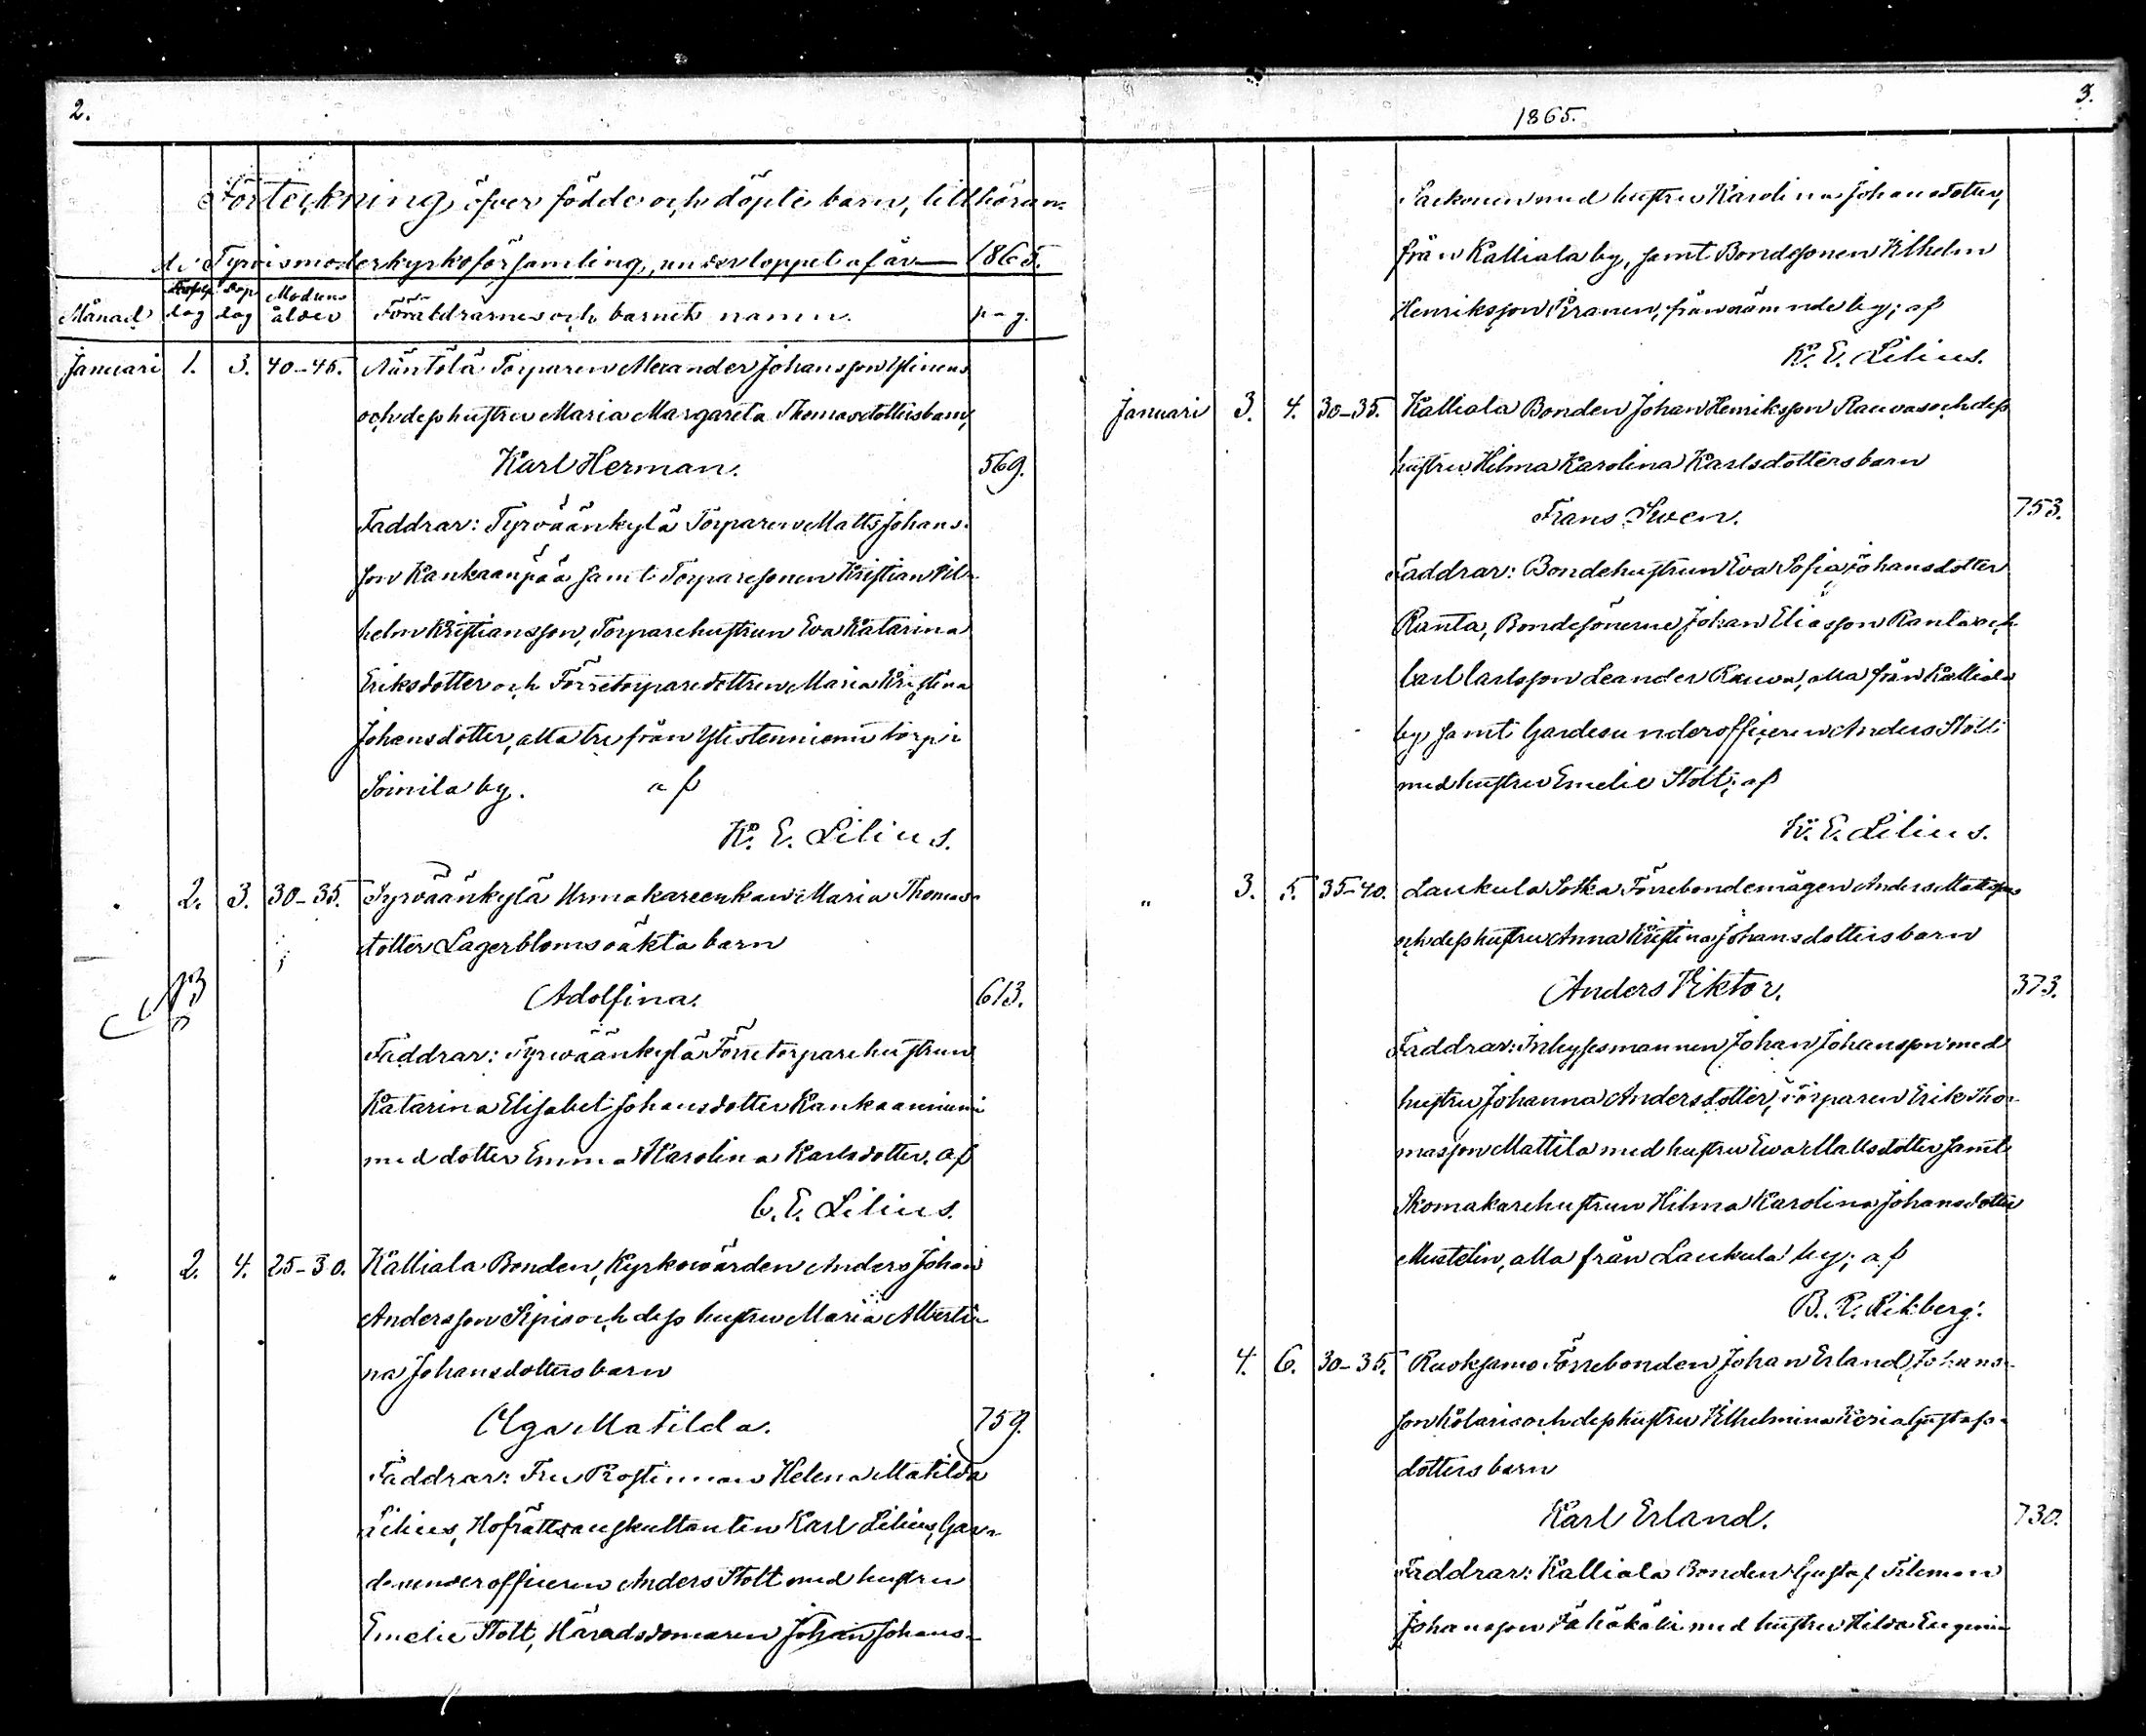 2.
Förteckning öfver födde och döpte barn, tillhöran-
de Tyrvis moderkyrkoförsamling, under loppet af år 1865.
Månad dag Döp dag Modrens ålder Föräldrarnes och barnets namn. pag.
Januari 1. 3. 40-45. Torparen Alexander Johansson Ylinens
och dess hustru Maria Margareta Thomasdotters barn,
Karl Herman. 569.
Faddrar: Tyrväänkylä Torparen Matts Johans-
son Kankaanpää samt Torparesonen Kristian Vil-
helm Kristiansson, Torparehustrun Eva Katarina
Eriksdotter och Förretorparedottren Maria Kristina
Johansdotter, alla tre från Ylistenniemi torp i
Soinila by. af
K. E. Lilius.
" 2. 3. 30-35. Tyrväänkylä Urmakareenkan Maria Thomas-
dotter Lagerbloms oäkta barn
Adolfina. 613.
Faddrar: Tyrwäänkylä Förretorparehustrun
Katarina Elisabet Johansdotter Kankaanniemi
med dotter Emma Karolina Karlsdotter. af
C. E. Lilius.
" 2. 4. 25-30. Kalliala Bonden, Kyrkowärden Anders Johan
Andersson Sipis och dess hustru Maria Alberti-
na Johansdotters barn
Olga Matilda. 759.
Faddrar: Fru Prostinnan Helena Matilda
Lilius, Hofrättsauskultanten Karl Lilius, Gar-
desunderofficeren Anders Stolt med hustru
Emelie Stolt, Häradsdomaren Johan Johans-
1865. 3.
med hustru Karolina Johansdotter,
från Kalliala by, samt Bondesonen Vilhelm
Henriksson från nämnde by; af
K. E. Lilius.
Januari 3. 4. 30-35. Kalliala Bonden Johan Henriksson Rauvas och dess
hustru Hilma Karolina Karlsdotters barn
Frans Swen. 753.
Faddrar: Bondehustrun Eva Sofia Johansdotter
Ranta, Bondesönerne Johan Eliasson Ranta och
Carl Carlsson Leander Rauva, alla från Kalliala
by samt Gardesunderofficeren Anders Stolt
med hustru Emelie Stolt; af
K. E. Lilius.
" 3. 5. 35-40. Laukula Sotka Förrebondemågen Anders Mattssons
och dess hustru Anna Kristina Johansdotters barn
Anders Viktor. 373.
Faddrar: Inhysesmannen Johan Johansson med
hustru Johanna Andersdotter, Torparen Erik Tho-
masson Mattila med hustru Ewa Mattsdotter samt
Skomakarehustrun Hilma Karolina Johansdotter
Mustelin, alla från Laukula by; af
B. R. Rikberg.
" 4. 6. 30-35. Ruoksamo Förrebonden Johan Erland Johans-
son Kolaris och dess hustru Vilhelmina Gustafs-
dotters barn
Karl Erland. 730.
Faddrar: Kalliala Bonden Gustaf Filemon
Johansson med hustru Hilda Eugenia